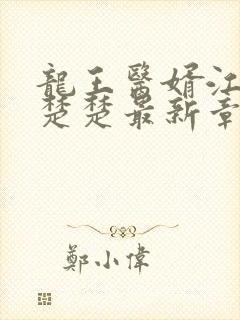 龍王醫婿江
楚楚最新章
鄭小偉